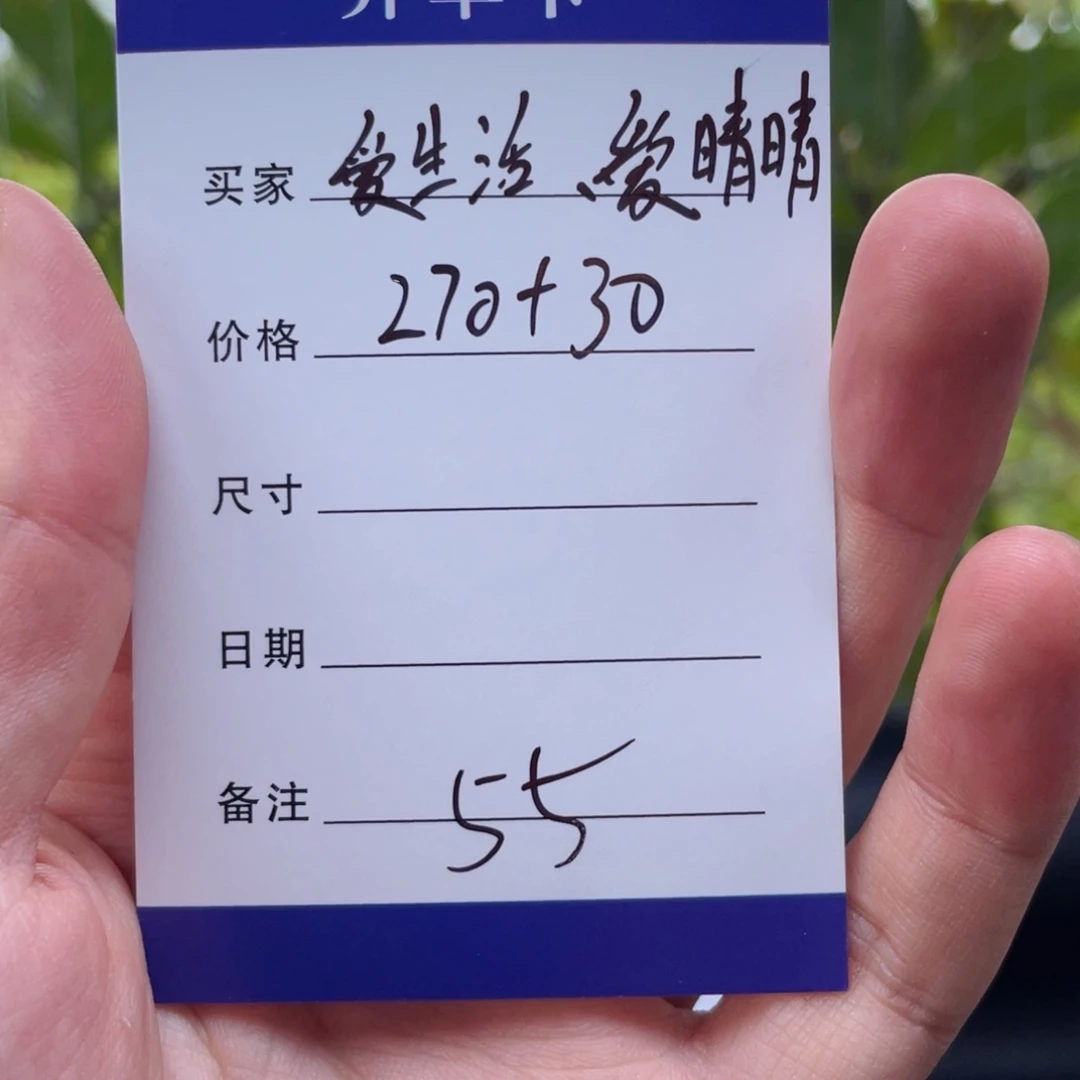 买家 爱生活、爱晴晴
价格 270+30
尺寸
日期
备注 55